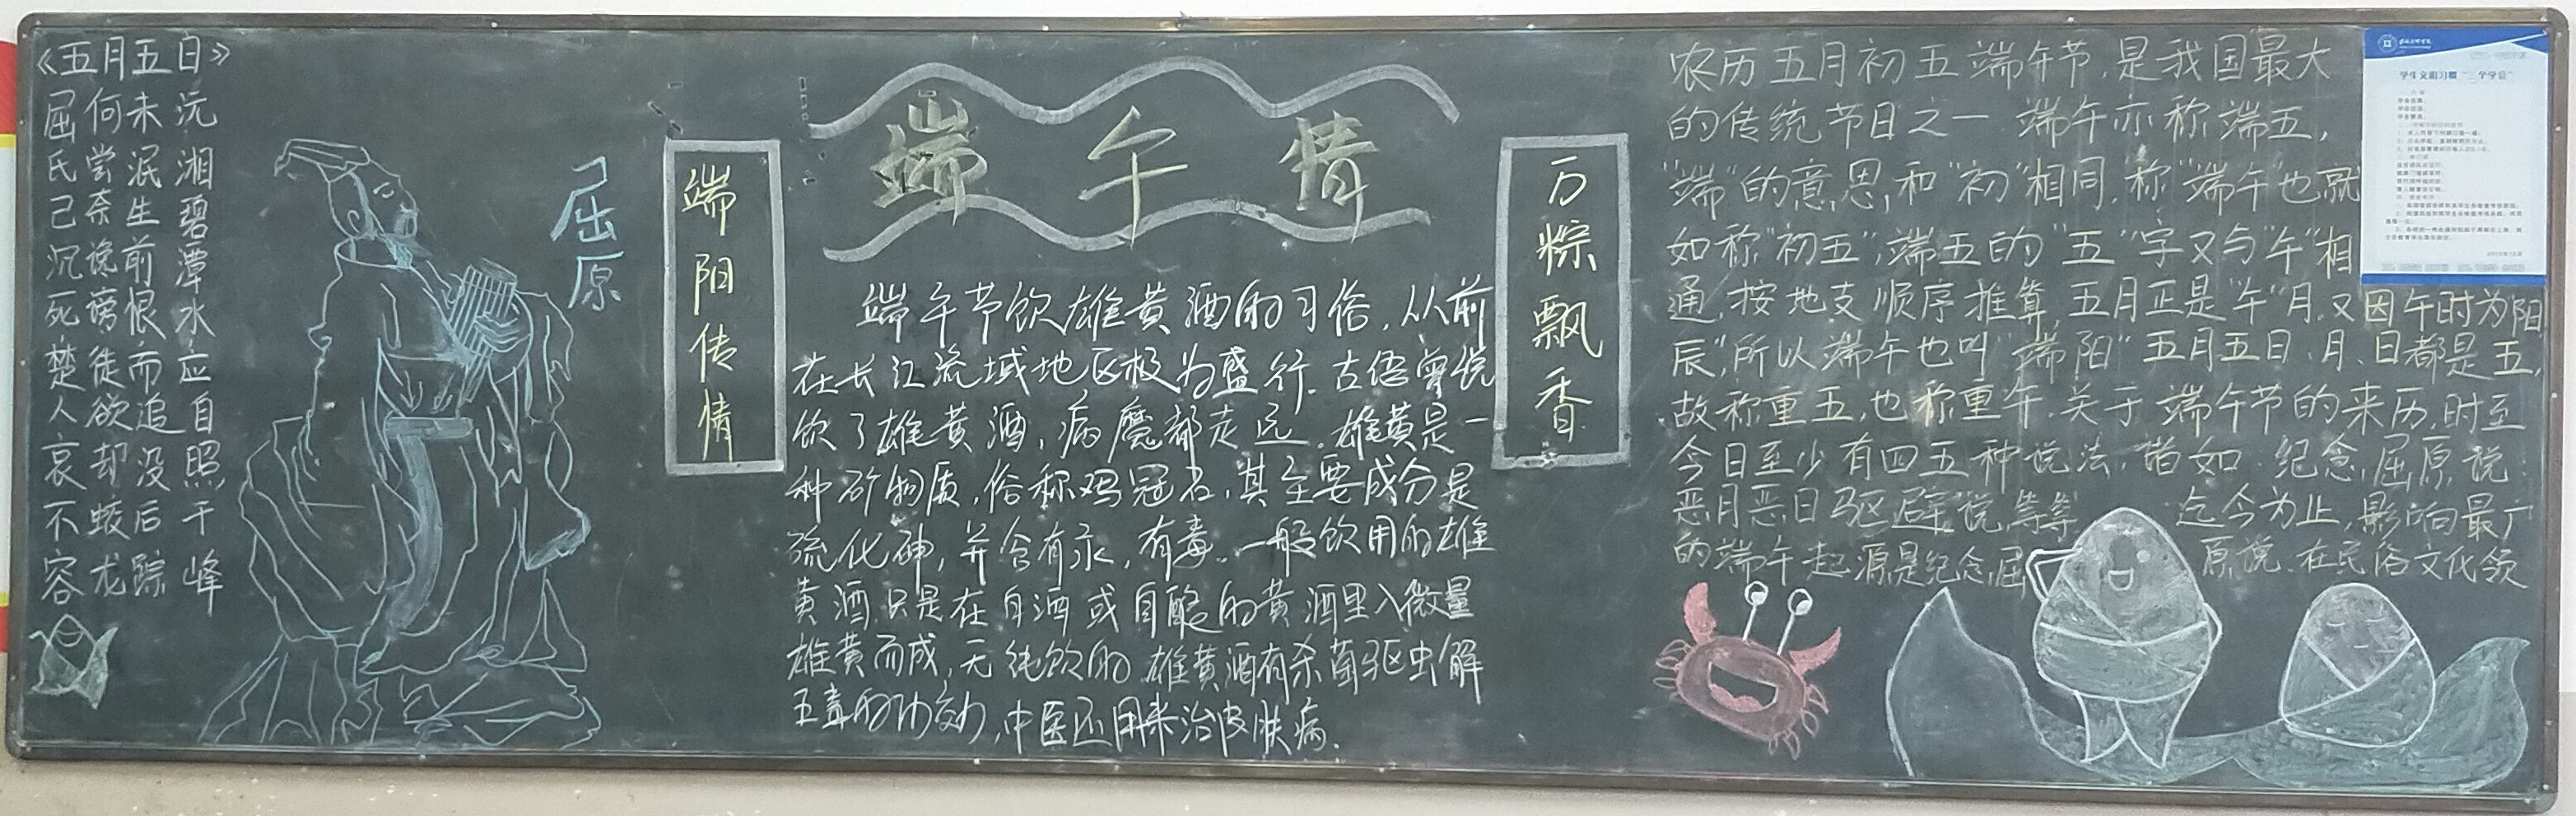 《五月五日》
屈氏己沉死楚人哀不容
何尝奈谗谤徒欲却蛟龙
未泯生前恨而追没后踪
沅湘碧潭水应自照千峰
屈原
端阳传情
端午情
万粽飘香
端午节饮雄黄酒的习俗，从前
在长江流域地区极为盛行.古语曾说
饮了雄黄酒，病魔都走远.雄黄是一
种矿物质，俗称鸡冠石，其主要成分是
硫化砷，并含有汞，有毒.一般饮用的雄
黄酒,只是在白酒或自酿的黄酒里入微量
雄黄而成,无纯饮的.雄黄酒有杀菌驱虫解
五毒的功效,中医还用来治皮肤病.
农历五月初五端午节,是我国最大
的传统节日之一 端午亦称端五,
"端"的意思,和"初"相同,称"端午"也就
如称"初五",端五的"五"字又与"午"相
通,按地支顺序推算,五月正是"午"月.又因午时为阳
辰",所以端午也叫"端阳"五月五日、月、日都是五,
故称重五,也称重午.关于端午节的来历,时至
今日至少有四五种说法,诸如 纪念屈原说
恶月恶日驱避说,等等 迄今为止,影响最广
的端午起源是纪念屈原说.在民俗文化领
学生文明习惯"三个学会"